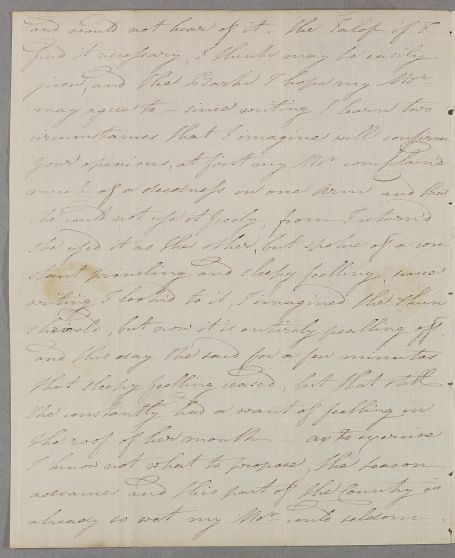 and would not hear of it. the Jalap if I
find it necessary, I think may be easily
given, and the Barks I hope my Mor
may agree to - since writing I learn two
circumstances that I imagine will confirm
your opinions, at first my Mor complain'd
much of a deadness in one Arm and that
she could not use it freely, from I return'd
she used it as the other, but spoke of a con
stant prinkling and sleepy feelling, since
writing I look'd to it, I imagined the skin
, but now it is entirely scalling off
and this day she said for a few minutes
that sleepy feelling ceased, but that still
she constantly had a want of feelling in
the roof of her mouth - as to exercise
I know not what to propose, the season
advances and this part of the Country is
already so wet my Mor could seldom